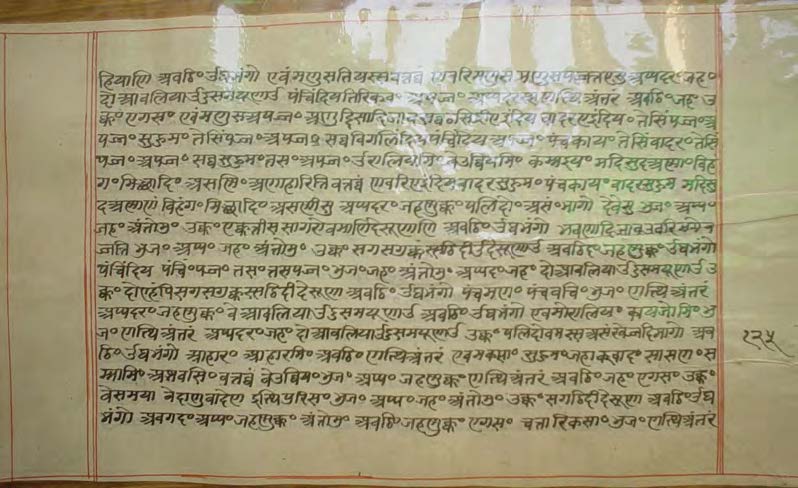 हियाणि अवठि॰ उघभंगो एवं मणुसतियस्स वत्तव्वं णवरि मणुस मणुसपज्जत्तएसु अप्पदर॰ जह॰
दो आवलियाउ दुसमयूणाउ पंचिंदियतिरिक्ख॰ अपज्ज॰ अप्पदरस्स णत्थि अंतरं अवठि॰ जह॰ उ
क्क॰ एगस॰ एवं मणुसअपज्ज॰ अणुद्दिसादि जाव सव्वठ॰ सिद्धि एइंदिय वादरएइंदिय॰ तेसिं पज्ज॰ अ
पज्ज॰ सुहुम॰ तेसिं पज्ज॰ अपज्ज॰ सव्वविगलिंदिय पंचिंदिय अपज्ज॰ पंचकाय॰ तेसिं वादर॰ तेसिं
पज्ज॰ अपज्ज॰ सव्वसुहुम॰ तस॰ अपज्ज॰ उरालियमि॰ वेउव्वियमि॰ कम्मइय॰ मदिसुदअण्णा॰ विहं
ग॰ मिच्छादि॰ असण्णि॰ अणाहारि त्ति वत्तव्वं णवरि एइंदिय वादर सुहुम॰ पंचकाय॰ वादर सुहुम मदिसु
दअण्णाणं विहंग॰ मिच्छादि॰ असण्णीसु अप्पदर॰ जहण्णुक्क॰ पलिदो॰ असं॰ भागो देवेसु भुज॰ अप्प॰
जह॰ अंतोमु॰ उक्क॰ एक्कत्तीस सागरोवमाणि देसूणाणि अवठि॰ उघभंगो भवणादि जाव उवरिमगेव
ज्जत्ति भुज॰ अप्प॰ जह॰ अंतोमु॰ उक्क॰ सगसगुक्कस्सठिदीउ देसूणाउ अवठि॰ जहण्णुक्क॰ उघभंगो
पंचिंदिय पंचिं॰ पज्ज॰ तस॰ तसपज्ज॰ भुज॰ जह॰ अंतोमु॰ अप्पद॰ जह॰ दो आवलियाउ दुसमयूणाउ उ
क्क॰ दोण्हंपि सगसगुक्कस्सठिदी देसूणा अवठि॰ उघभंगो पंचमण॰ पंचवचि॰ भुज॰ णत्थि अंतरं
अप्पदर॰ जहण्णुक्क॰ वे आवलियाउ दुसमयूणाउ अवठि॰ उघभंगो एवमोरालिय॰ कायजोगि॰ भु
ज॰ णत्थि अंतरं अप्पदर॰ जह॰ दो आवलियाउ दुसमयूणाउ उक्क॰ पलिदोवमस्स असंखेज्जदिभागो अव
ठि॰ उघभंगो आहार॰ आहारमि॰ अवठि॰ णत्थि अंतरं एवमकसा॰ सुहुम॰ जहाक्खाद॰ सासण॰ स
म्मामि॰ अभवसि॰ वत्तव्वं वेउव्विय॰ भुज॰ अप्प॰ जहण्णुक्क॰ णत्थि अंतरं अवठि॰ जह॰ एगस॰ उक्क॰
वेसमया वेदाणुवादेण इत्थि पुरिस॰ भुज॰ अप्प॰ जह॰ अंतोमु॰ उक्क॰ सगठिदी देसूणा अवठि॰ उघ
भंगो अवगद॰ अप्प॰ जहण्णुक्क॰ अंतोमु॰ अवठि॰ जहण्णुक्क॰ एगस॰ चत्तारिकसा॰ भुज॰ णत्थि अंतरं